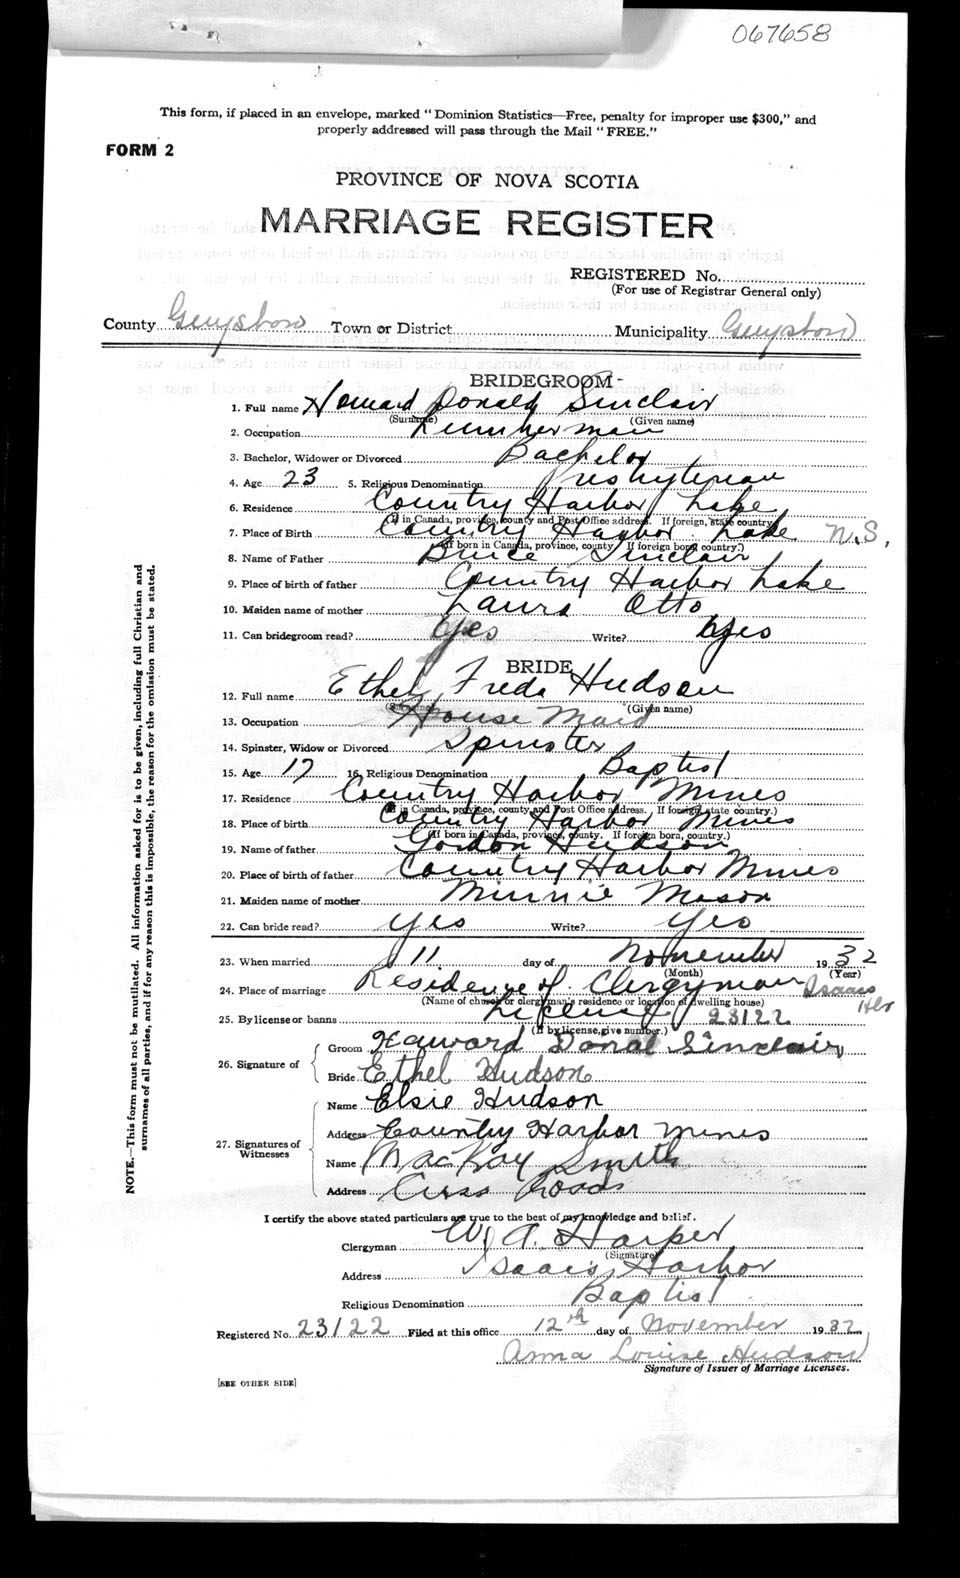 067658
This form, if placed in an envelope, marked "Dominion Statistics—Free, penalty for improper use $300," and
properly addressed will pass through the Mail "FREE."
FORM 2
PROVINCE OF NOVA SCOTIA
MARRIAGE REGISTER
REGISTERED No.
(For use of Registrar General only)
County Guysboro Town or District Municipality Guysboro
BRIDEGROOM
1. Full name Howard Donald Sinclair
(Surname) (Given name)
2. Occupation Lumberman
3. Bachelor, Widower or Divorced Bachelor
4. Age 23 5. Religious Denomination Presbyterian
6. Residence Country Harbor Lake
(If in Canada, province, county and Post Office address. If foreign, state country.)
7. Place of Birth Country Harbor Lake N.S.
(If born in Canada, province, county. If foreign born, country.)
8. Name of Father Bruce Sinclair
9. Place of birth of father Country Harbor Lake
10. Maiden name of mother Laura Otto
11. Can bridegroom read? Yes Write? Yes
BRIDE
12. Full name Ethel Freda Hudson
(Surname) (Given name)
13. Occupation House Maid
14. Spinster, Widow or Divorced Spinster
15. Age 17 16. Religious Denomination Baptist
17. Residence Country Harbor Mines
(If in Canada, province, county and Post Office address. If foreign, state country.)
18. Place of birth Country Harbor Mines
(If born in Canada, province, county. If foreign born, country.)
19. Name of father Gordon Hudson
20. Place of birth of father Country Harbor Mines
21. Maiden name of mother Minnie Mason
22. Can bride read? Yes Write? Yes
23. When married 11 day of November 1932
(Month) (Year)
24. Place of marriage Residence of Clergyman Isaacs Hbr
(Name of church or clergyman's residence or location of dwelling house)
25. By license or banns License 23122
(If by license, give number.)
26. Signature of
Groom Haward Donal Sinclair
Bride Ethel Hudson
27. Signatures of Witnesses
Name Elsie Hudson
Address Country Harbor Mines
Name MacKay Smith
Address Cross Roads
I certify the above stated particulars are true to the best of my knowledge and belief.
Clergyman W. A. Harper
(Signature)
Address Isaacs Harbor
Religious Denomination Baptist
Registered No. 23122 Filed at this office 12th day of November 1932
Anna Louise Hudson
Signature of Issuer of Marriage Licenses.
[SEE OTHER SIDE]
NOTE.—This form must not be mutilated. All information asked for is to be given, including full Christian and
surnames of all parties, and if for any reason this is impossible, the reason for the omission must be stated.